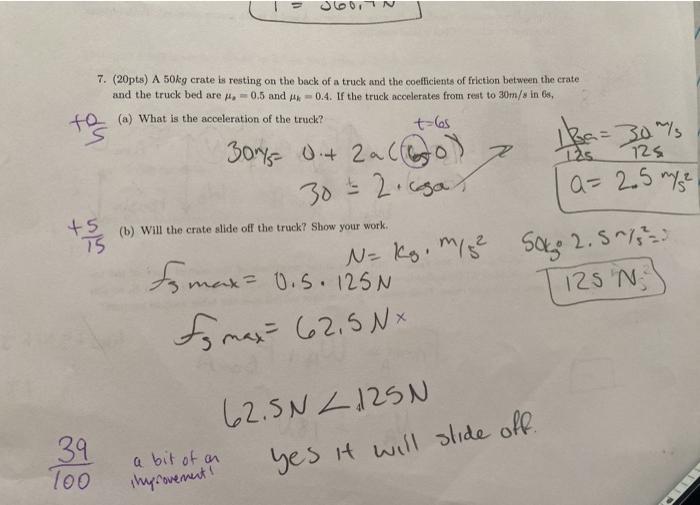 7. (20pts) A 50kg crate is resting on the back of a truck and the coefficients of friction between the crate
and the truck bed are μs = 0.5 and μk = 0.4. If the truck accelerates from rest to 30m/s in 6s,
+0/5 (a) What is the acceleration of the truck?
t=6s
30m/s = 0 + 2a(6s-0)
30 = 2·6sa
12a/12s = 30m/s/12s
a = 2.5 m/s²
+5/15 (b) Will the crate slide off the truck? Show your work.
N = kg · m/s²
50kg · 2.5m/s² =
125 N
fs max = 0.5 · 125N
fs max = 62.5 N x
62.5N < 125N
yes it will slide off.
39/100
a bit of an
improvement!